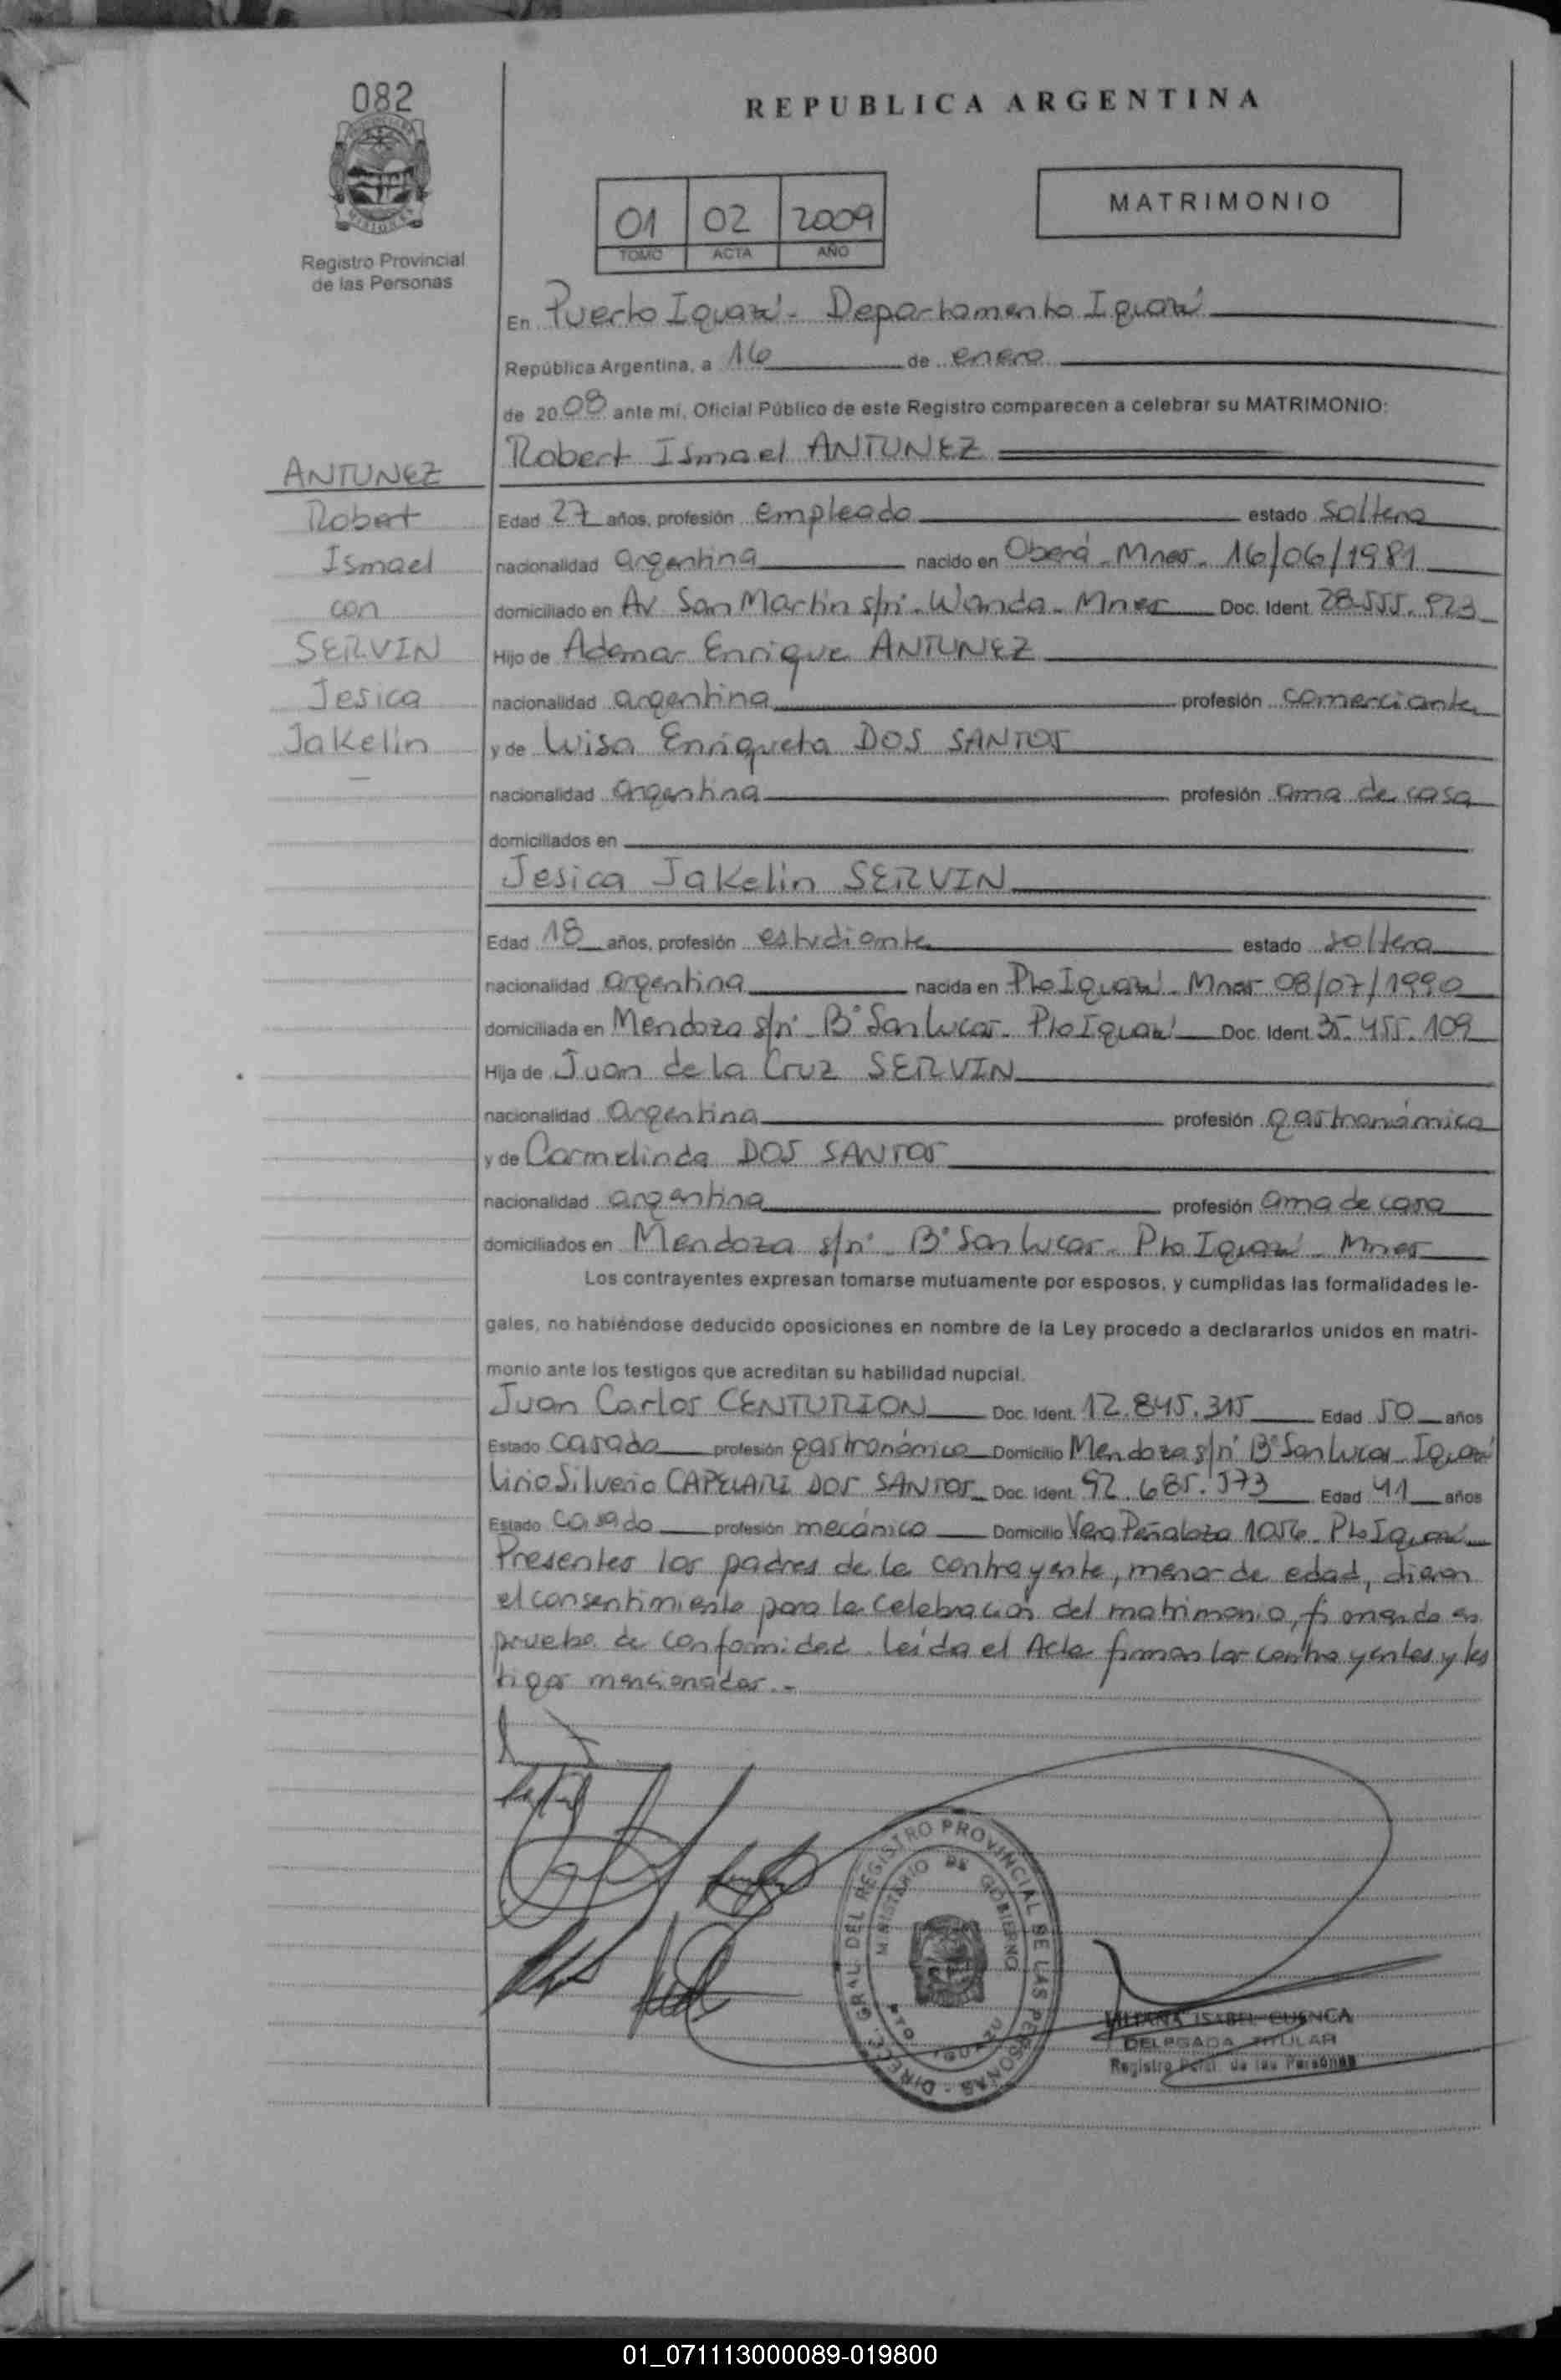 082
REPUBLICA ARGENTINA
MATRIMONIO
01 02 2009
TOMO ACTA AÑO
Registro Provincial
de las Personas
En Puerto Iguazú - Departamento Iguazú
República Argentina, a 16 de enero
de 2009 ante mí, Oficial Público de este Registro comparecen a celebrar su MATRIMONIO:
Robert Ismael ANTUNEZ
ANTUNEZ
Robert
Ismael
con
SERVIN
Jesica
Jakelin
Edad 27 años, profesión empleado estado soltero
nacionalidad argentina nacido en Oberá - Mnes - 16/06/1981
domiciliado en Av San Martín s/nº - Wanda - Mnes Doc. Ident. 28.555.923
Hijo de Ademar Enrique ANTUNEZ
nacionalidad argentina profesión comerciante
y de Luisa Enriqueta DOS SANTOS
nacionalidad argentina profesión ama de casa
domiciliados en
Jesica Jakelin SERVIN
Edad 18 años, profesión estudiante estado soltera
nacionalidad argentina nacida en Pto Iguazú - Mnes - 08/07/1990
domiciliada en Mendoza s/nº - Bº San Lucas - Pto Iguazú Doc. Ident. 35.455.109
Hija de Juan de la Cruz SERVIN
nacionalidad argentina profesión gastronómico
y de Carmelinda DOS SANTOS
nacionalidad argentina profesión ama de casa
domiciliados en Mendoza s/nº - Bº San Lucas - Pto Iguazú - Mnes
Los contrayentes expresan tomarse mutuamente por esposos, y cumplidas las formalidades le-
gales, no habiéndose deducido oposiciones en nombre de la Ley procedo a declararlos unidos en matri-
monio ante los testigos que acreditan su habilidad nupcial.
Juan Carlos CENTURION Doc. Ident. 12.845.315 Edad 50 años
Estado casado profesión gastronómico Domicilio Mendoza s/nº Bº San Lucas - Iguazú
Lirio Silverio CAPELARI DOS SANTOS Doc. Ident. 92.685.573 Edad 41 años
Estado casado profesión mecánico Domicilio Vera Peñaloza 1056 - Pto Iguazú
Presentes los padres de la contrayente, menor de edad, dieron
el consentimiento para la celebración del matrimonio, firmando en
prueba de conformidad. Leída el Acta firman los contrayentes y tes
tigos mencionados.-
DIREC. GRAL DEL REGISTRO PROVINCIAL DE LAS PERSONAS
MINISTERIO DE GOBIERNO
PTO. IGUAZU
LILIANA ISABEL CUENCA
DELEGADA TITULAR
Registro de las Personas
01_071113000089-019800